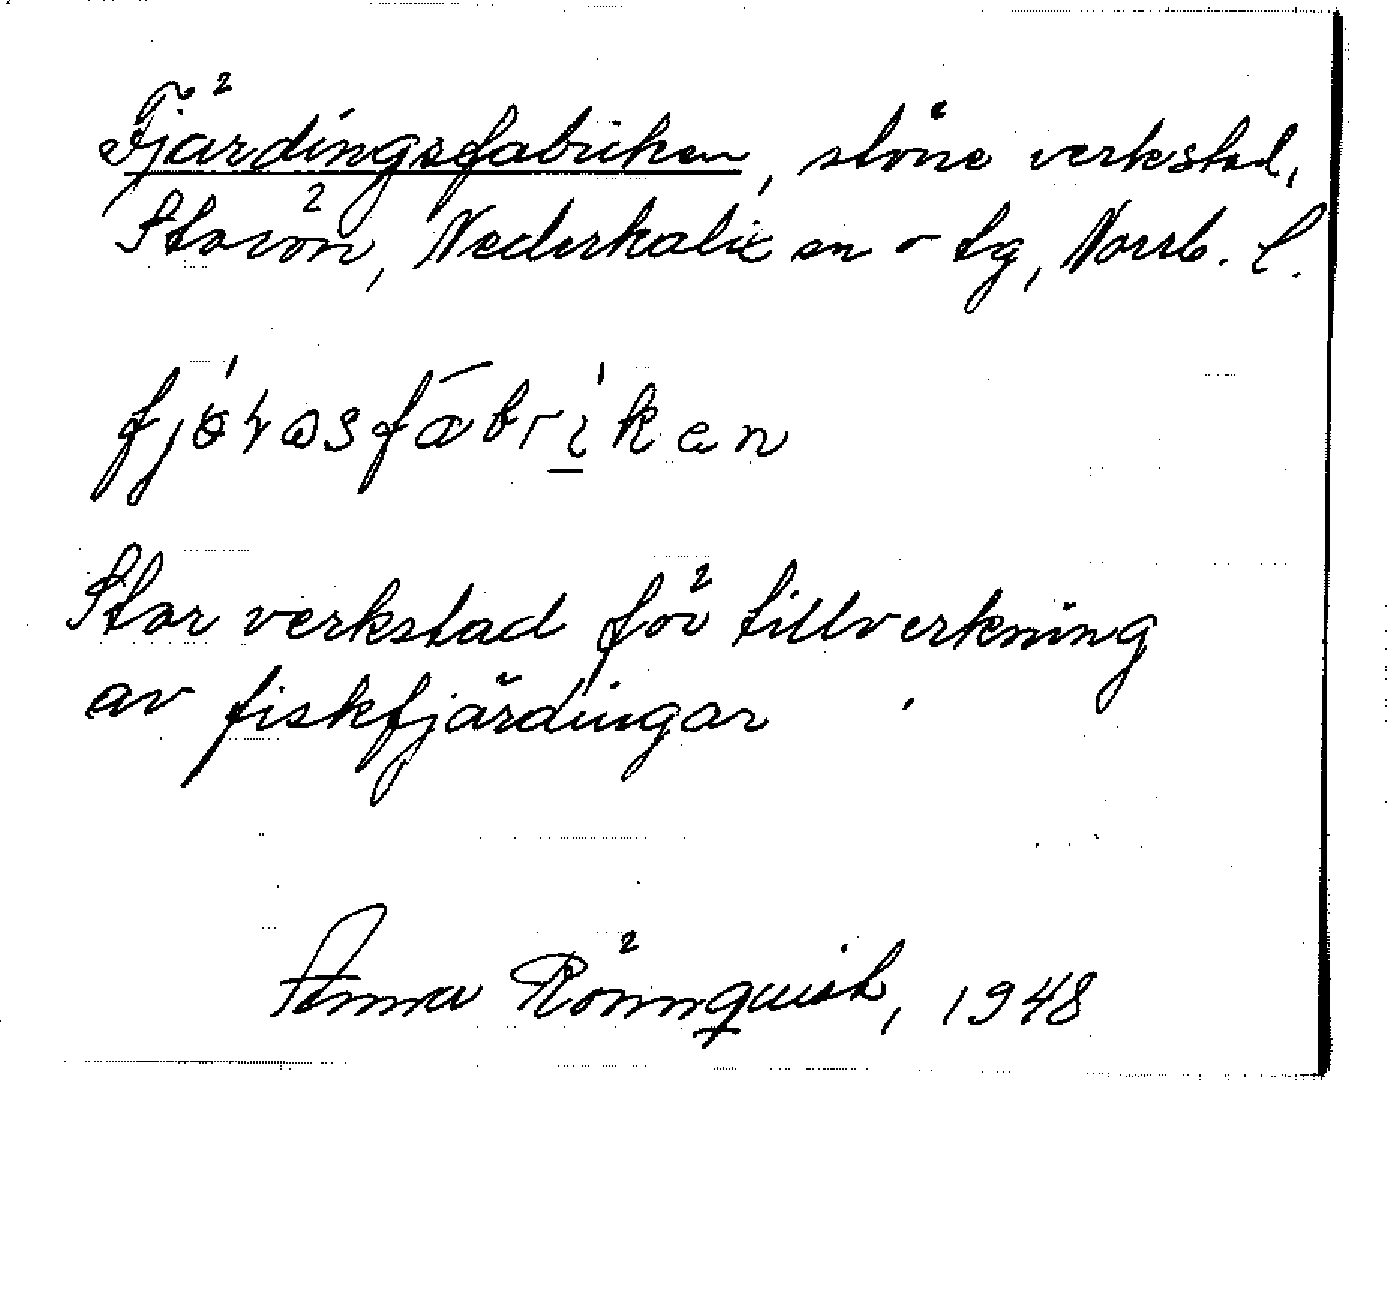 Fjärdingsfabriken, större verkstad,
Storön, Nederkalix sn o tg, Norrb. l.
Stor verkstad för tillverkning
av fiskfjärdingar
Anna Rönnquist, 1948